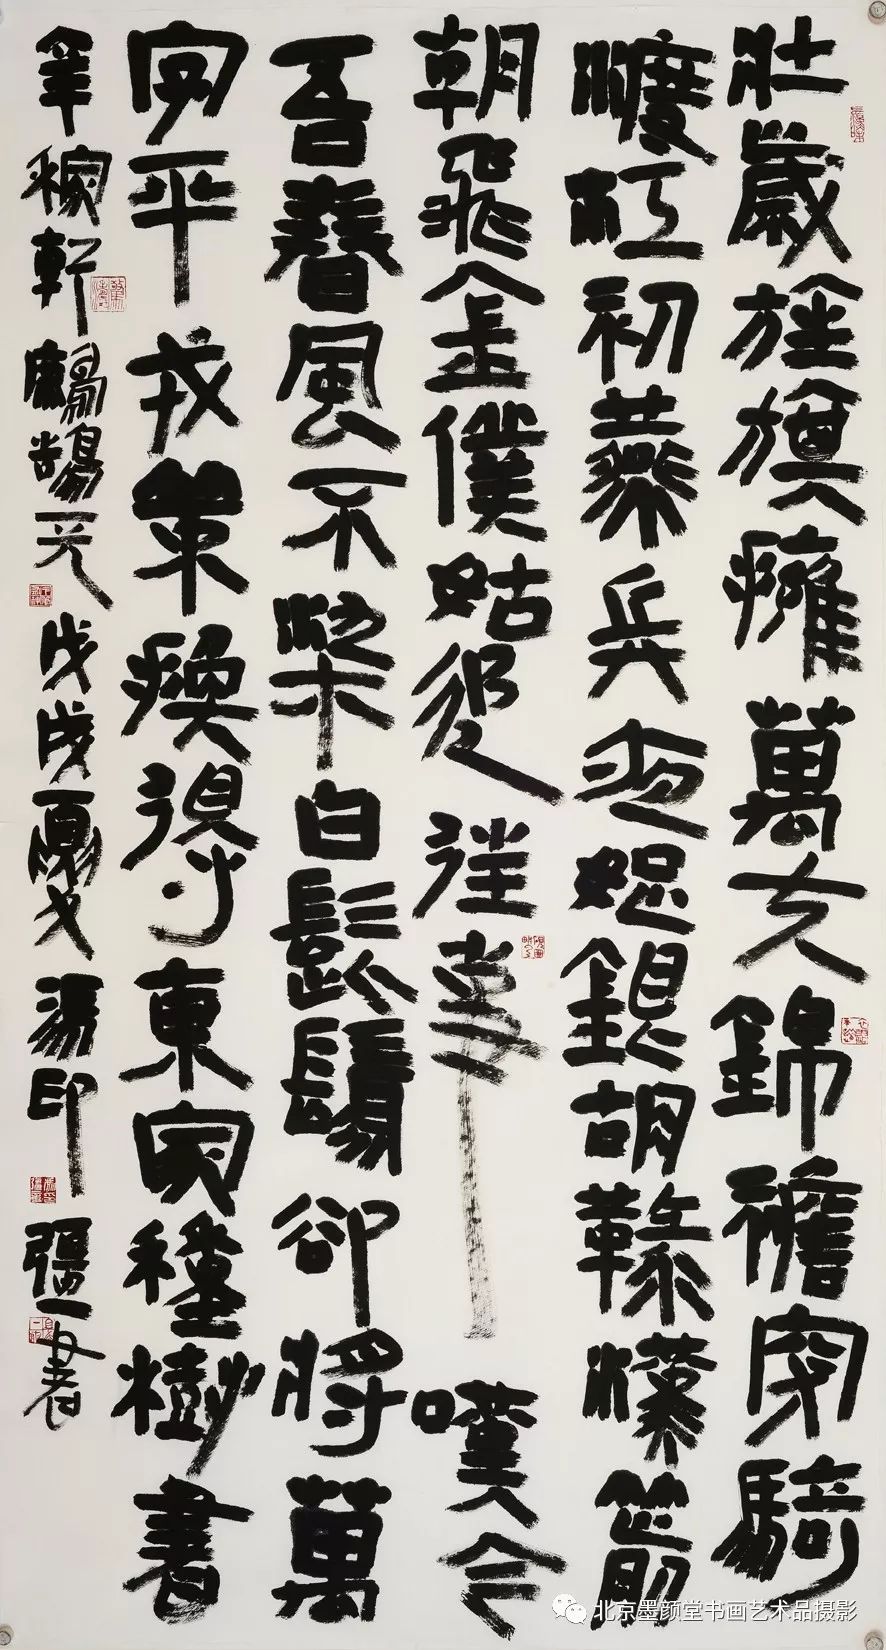 壯歲旌旗擁萬夫錦襜突騎
渡江初燕兵夜娖銀胡䩮漢箭
朝飛金僕姑追往事嘆今
吾春風不染白髭鬚卻將萬
字平戎策換得東家種樹書
辛稼軒鷓鴣天 戊戌夏 湯印彊書
北京墨颜堂书画艺术品摄影